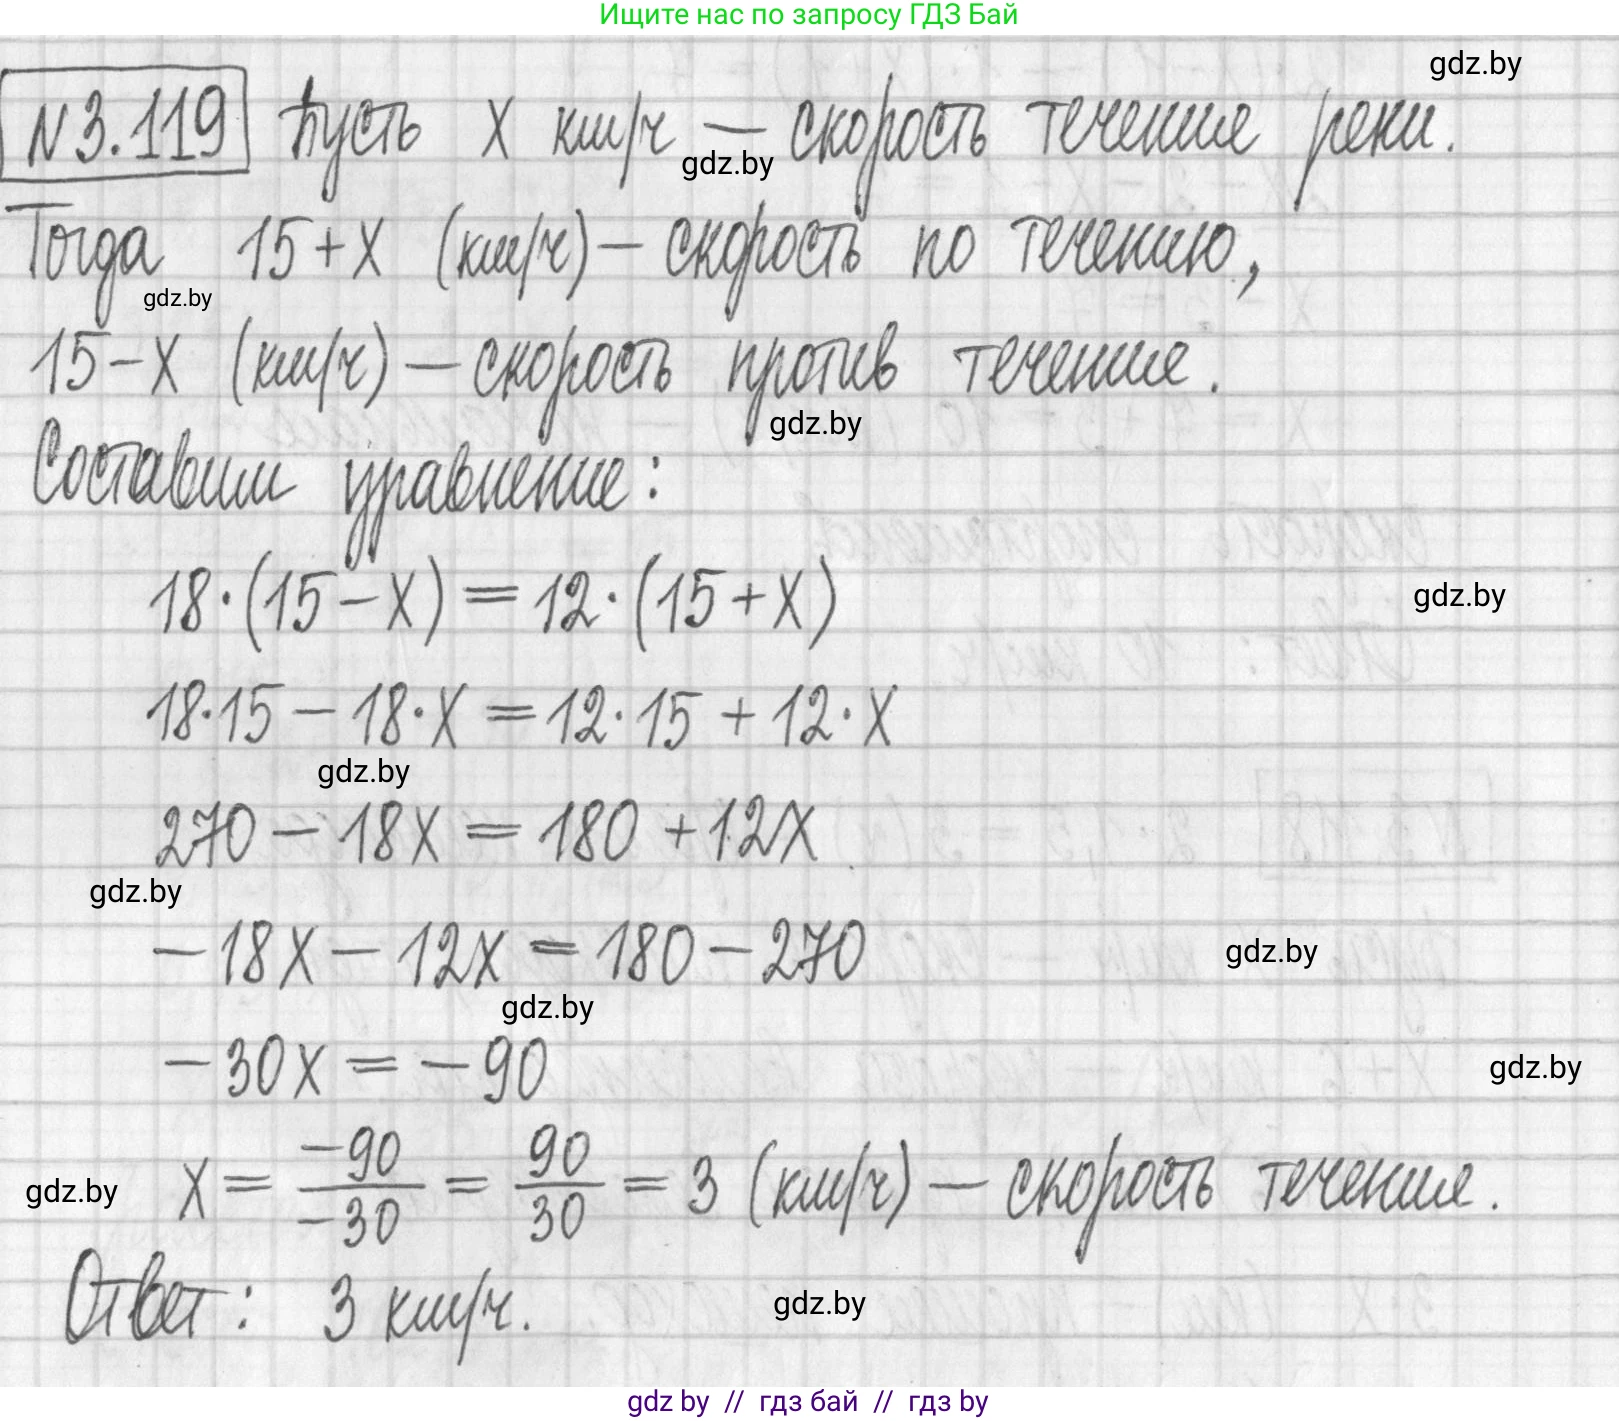 Ищите нас по запросу ГДЗ Бай
gdz.by
N3.119 Пусть x км/ч — скорость течение реки.
gdz.by
Тогда 15+x (км/ч) — скорость по течению,
gdz.by
15-x (км/ч) — скорость против течение.
gdz.by
Составим уравнение:
18·(15-x) = 12·(15+x)
gdz.by
18·15 - 18·x = 12·15 + 12·x
gdz.by
270 - 18x = 180 + 12x
gdz.by
-18x - 12x = 180 - 270
gdz.by
gdz.by
-30x = -90
gdz.by
x = -90/-30 = 90/30 = 3 (км/ч) — скорость течения.
gdz.by
Ответ: 3 км/ч.
gdz.by
gdz by // гдз бай // гдз by